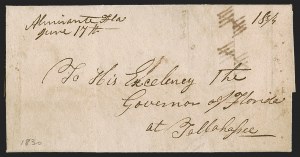 Almirante Fla
June 17th
18¾
To His Excelency The
Governor of Florida
at Tallahasse
1830